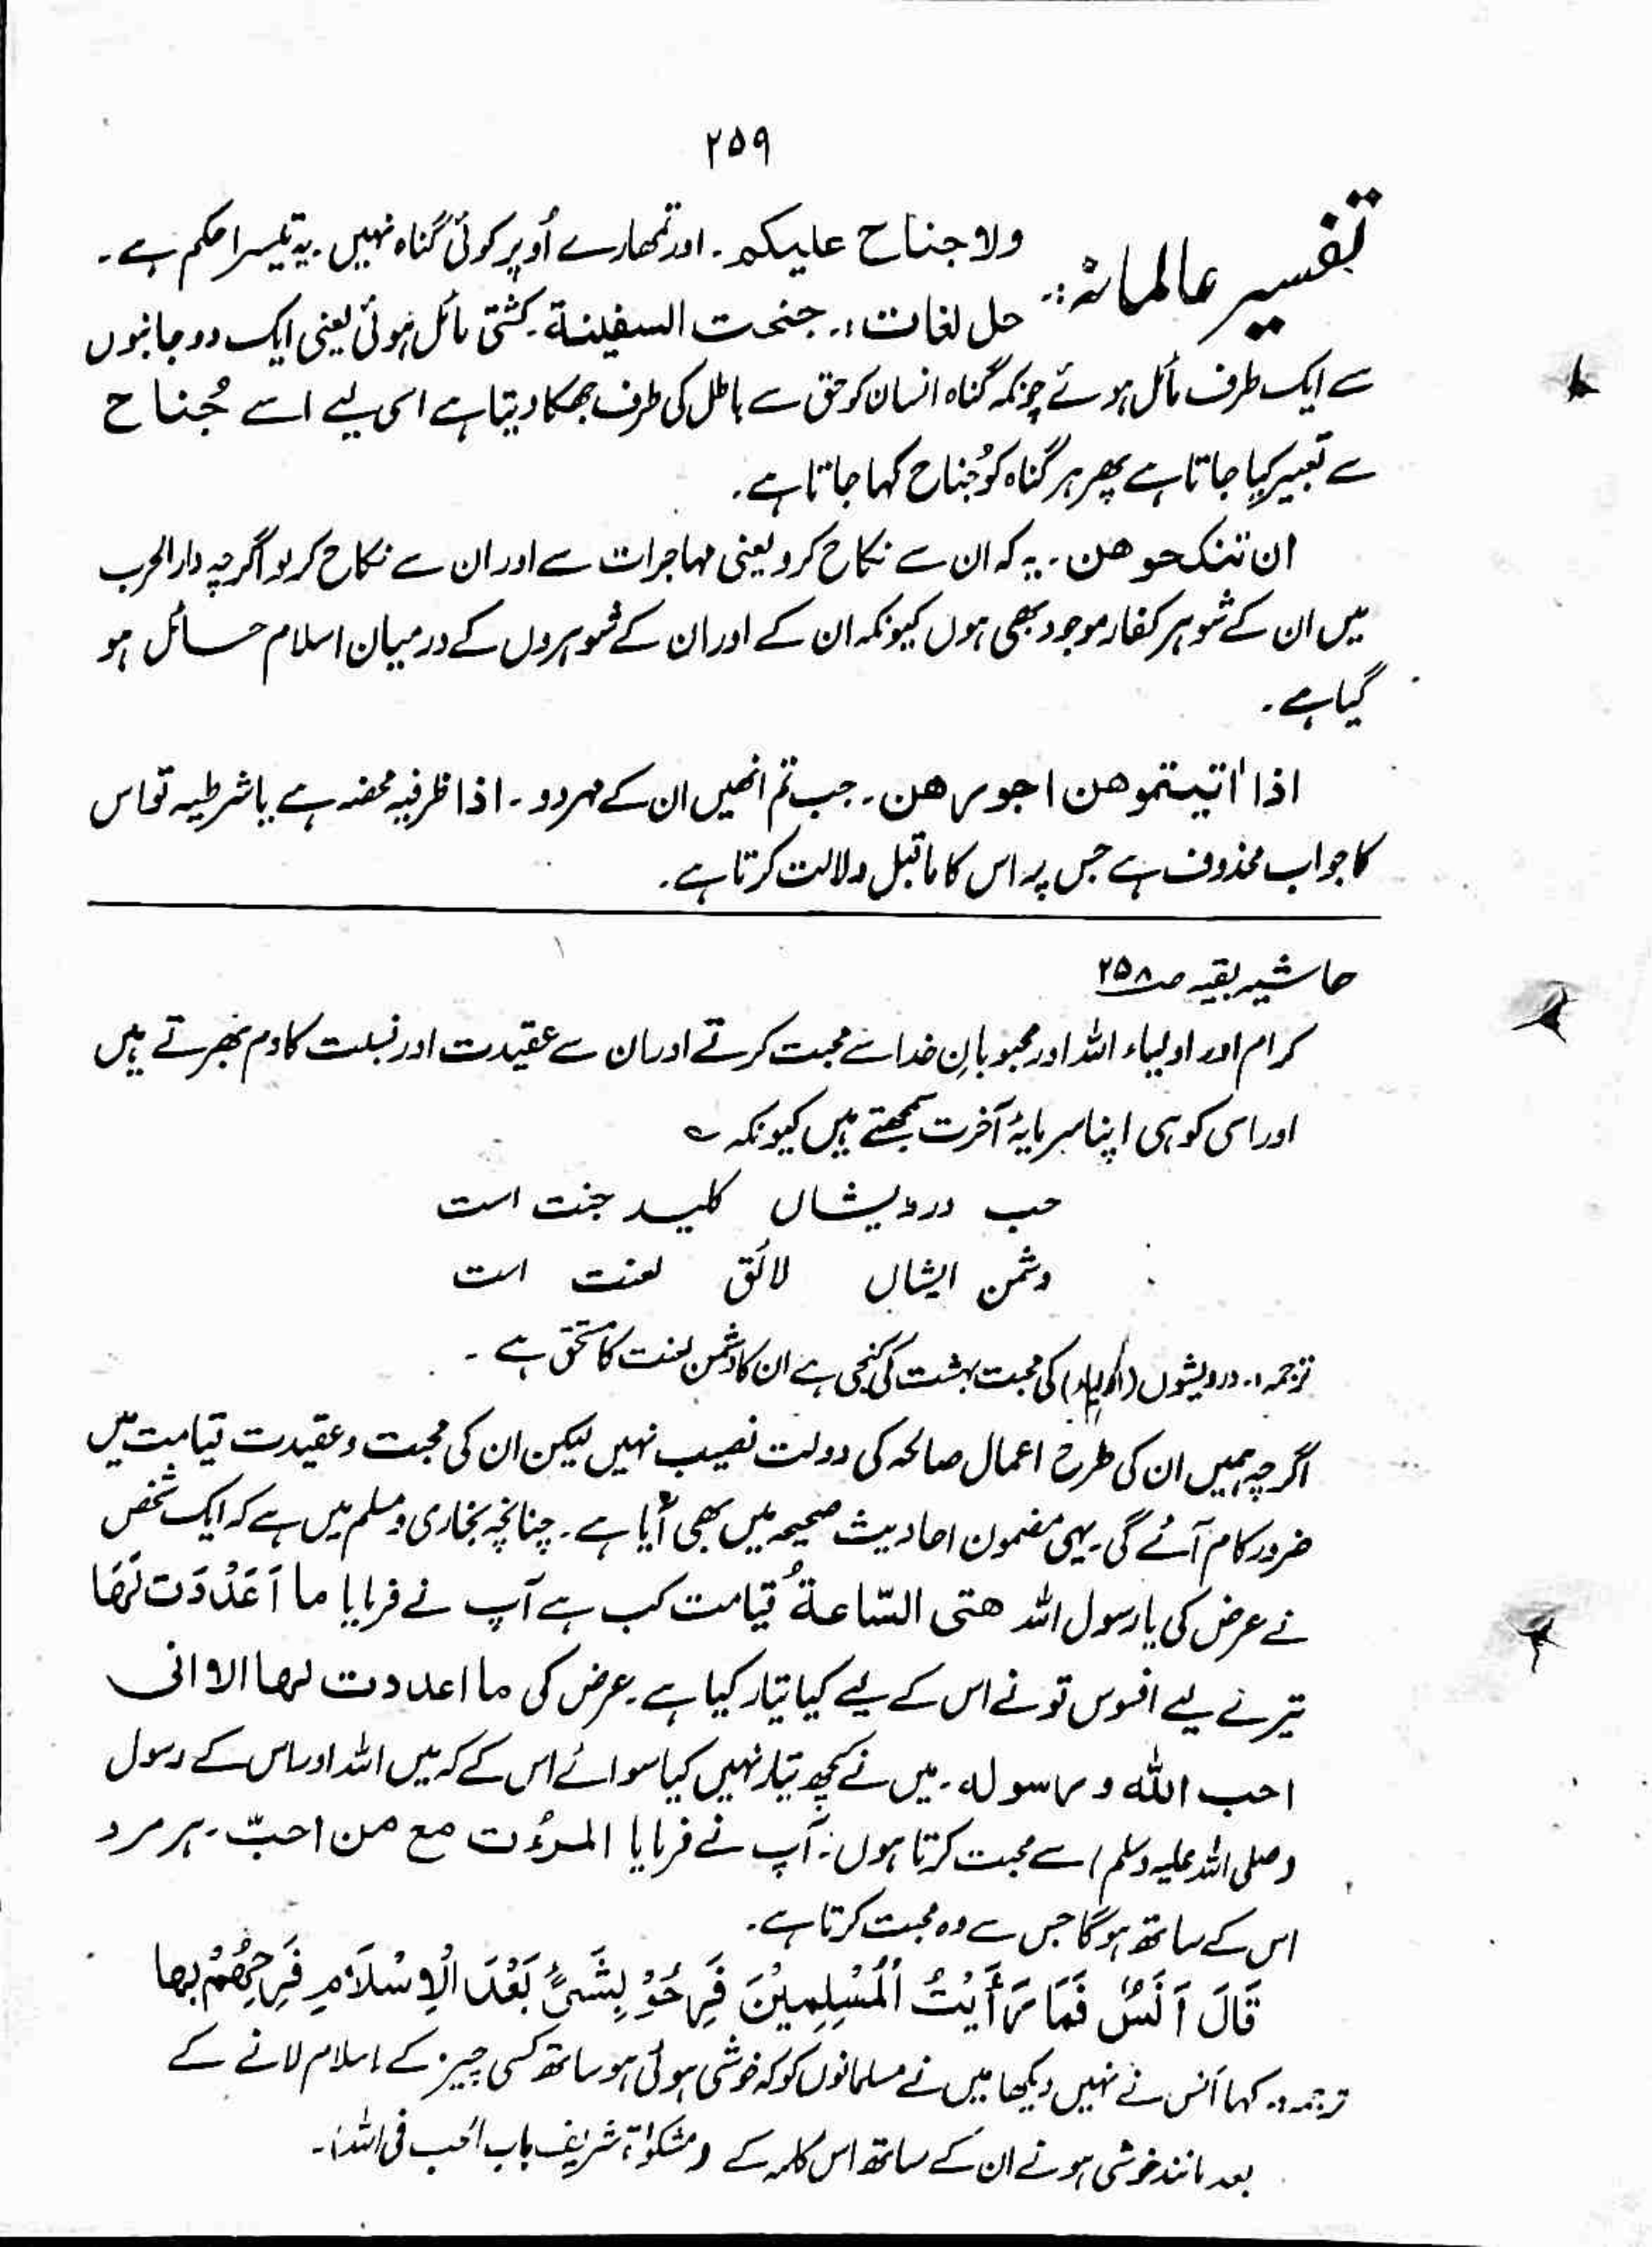 ۲۵۹
تفسیر عالمانہ:۔ ولا جناح علیکم۔ اور تمھارے اُوپر کوئی گناہ نہیں۔ یہ تیسرا حکم ہے۔
حل لغات:۔ جنحت السفینۃ۔ کشتی مائل ہوئی یعنی ایک دو جانبوں
سے ایک طرف مائل ہوئے چونکہ گناہ انسان کو حق سے باطل کی طرف جھکا دیتا ہے اسی لیے اسے جُناح
سے تعبیر کیا جاتا ہے پھر ہر گناہ کو جُناح کہا جاتا ہے۔
ان تنکحوھن۔ یہ کہ ان سے نکاح کرو یعنی مہاجرات سے اور ان سے نکاح کر لو اگرچہ دارالحرب
میں ان کے شوہر کفار موجود بھی ہوں کیونکہ ان کے اور ان کے شوہروں کے درمیان اسلام حائل ہو
گیا ہے۔
اذا اٰتیتموھن اجورھن۔ جب تم انھیں ان کے مہر دو۔ اذا ظرفیہ محضہ ہے یا شرطیہ تو اس
کا جواب محذوف ہے جس پر اس کا ماقبل دلالت کرتا ہے۔
حاشیہ بقیہ صـ۲۵۸
کرام اور اولیاء اللہ اور محبوبانِ خدا سے محبت کرتے اور ان سے عقیدت اور نسبت کا دم بھرتے ہیں
اور اسی کو ہی اپنا سرمایۂ آخرت سمجھتے ہیں کیونکہ ؎
حب درویشاں کلید جنت است
دشمن ایشاں لائق لعنت است
ترجمہ:۔ درویشوں (اولیاء) کی محبت بہشت کی کنجی ہے ان کا دشمن لعنت کا مستحق ہے۔
اگرچہ ہمیں ان کی طرح اعمال صالحہ کی دولت نصیب نہیں لیکن ان کی محبت و عقیدت قیامت میں
ضرور کام آئے گی۔ یہی مضمون احادیث صحیحہ میں بھی آیا ہے۔ چنانچہ بخاری و مسلم میں ہے کہ ایک شخص
نے عرض کی یا رسول اللہ متی السّاعۃُ قیامت کب ہے آپ نے فرمایا ما اَعَدْدَت لَھَا
تیرے لیے افسوس تو نے اس کے لیے کیا تیار کیا ہے۔ عرض کی ما اعددت لھا الا انی
احب اللہ و رسولہ۔ میں نے کچھ تیار نہیں کیا سوائے اس کے کہ میں اللہ اور اس کے رسول
(صلی اللہ علیہ وسلم) سے محبت کرتا ہوں۔ آپ نے فرمایا المرءُت مع من احبّ۔ ہر مرد
اس کے ساتھ ہوگا جس سے وہ محبت کرتا ہے۔
قَالَ اَنَسٌ فَمَا رَأَیْتُ الْمُسْلِمِیْنَ فَرِحُوْ بِشَیْءٍ بَعْدَ الْاِسْلَامِ فَرِحَھُمْ بھا
ترجمہ:۔ کہا انس نے نہیں دیکھا میں نے مسلمانوں کو کہ خوشی ہوئی ہو ساتھ کسی چیز کے اسلام لانے کے
بعد مانند خوشی ہونے ان کے ساتھ اس کلمہ کے (مشکوٰۃ شریف باب الحب فی اللہ)۔